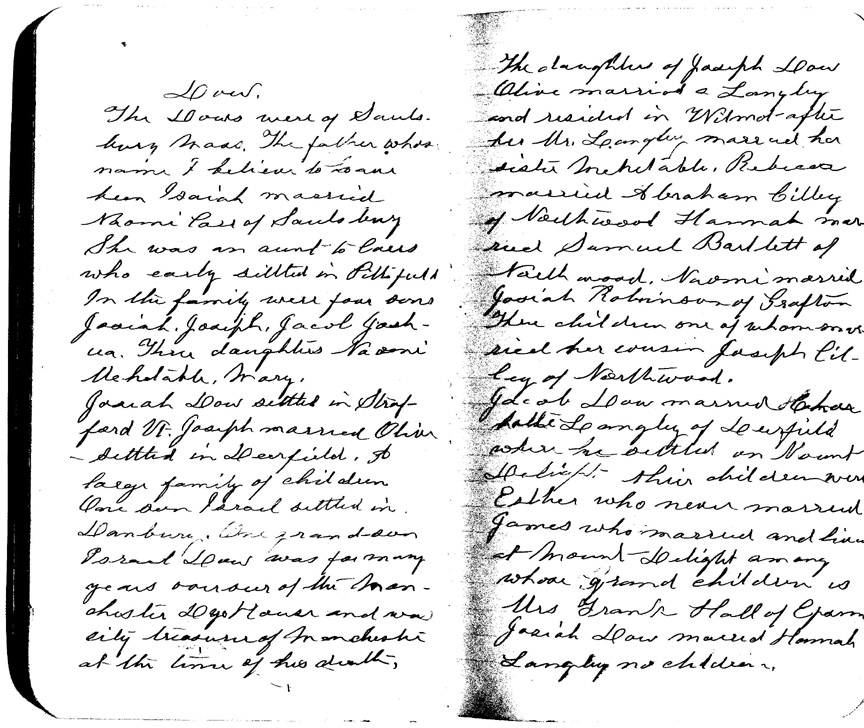 Dow.
The Dows were of Sauls-
bury Mass. The father whos
name I believe to have
been Isaiah married
Naomi Carr of Saulsbury
She was an aunt to Carrs
who early settled in Pittsfield
In the family were four sons
Josiah, Joseph, Jacob Josh-
ua. Three daughters Naomi
Mehetable, Mary.
Josiah Dow settled in Straf-
ford Vt. Joseph married Olive
- settled in Deerfield. A
large family of children
One son Israel settled in
Danbury. One grand-son
Israel Dow was for many
years overseer of the Man-
chester Dye House and was
city treasure of Manchester
at the time of his death,
The daughters of Joseph Dow
Olive married a Langley
and resided in Wilmot - after
her Mr. Langley married her
sister Mehetable. Rebecca
married Abraham Cilley
of Northwood Hannah mar-
ried Samuel Bartlett of
Northwood. Naomi married
Josiah Robinson of Grafton
Three children one of whom mar
ried her cousin Joseph Cil-
ley of Northwood.
Jacob Dow married
Langley of Deerfield
where he settled on Mount
Delight. their children were
Esther who never married
James who married and lived
at Mount Delight among
whose grand children is
Mrs Frank Hall of
Josiah Dow married Hannah
Langley no children.